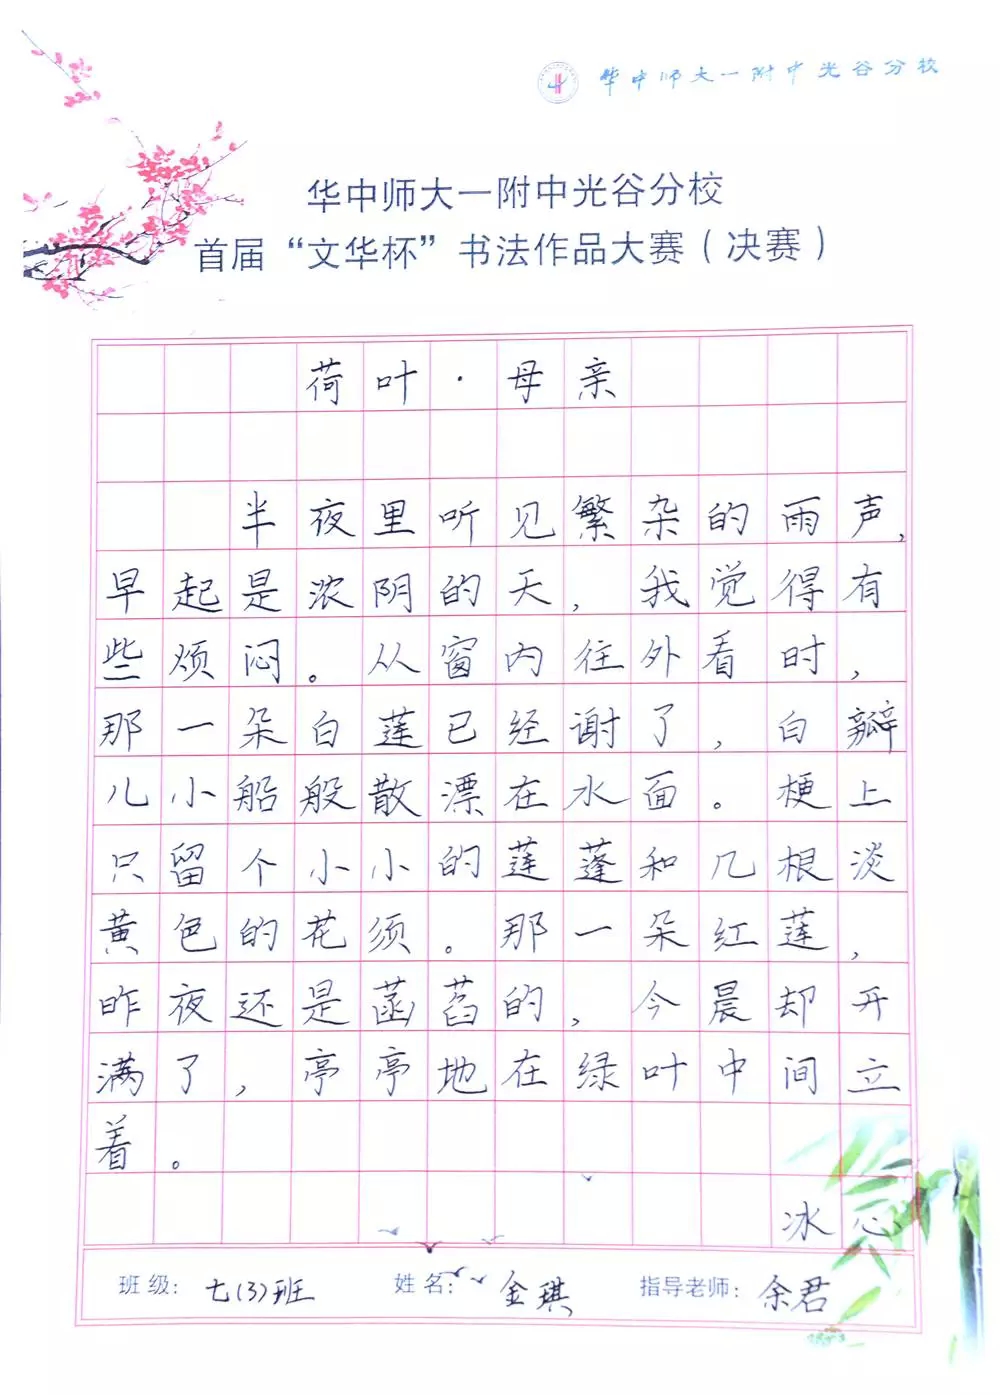 华中师大一附中光谷分校
华中师大一附中光谷分校
首届“文华杯”书法作品大赛（决赛）
荷叶·母亲
半夜里听见繁杂的雨声，
早起是浓阴的天，我觉得有
些烦闷。从窗内往外看时，
那一朵白莲已经谢了，白瓣
儿小船般散漂在水面。梗上
只留个小小的莲蓬和几根淡
黄色的花须。那一朵红莲，
昨夜还是菡萏的，今晨却开
满了，亭亭地在绿叶中间立
着。
冰心
班级：七(3)班 姓名：金琪 指导老师：余君